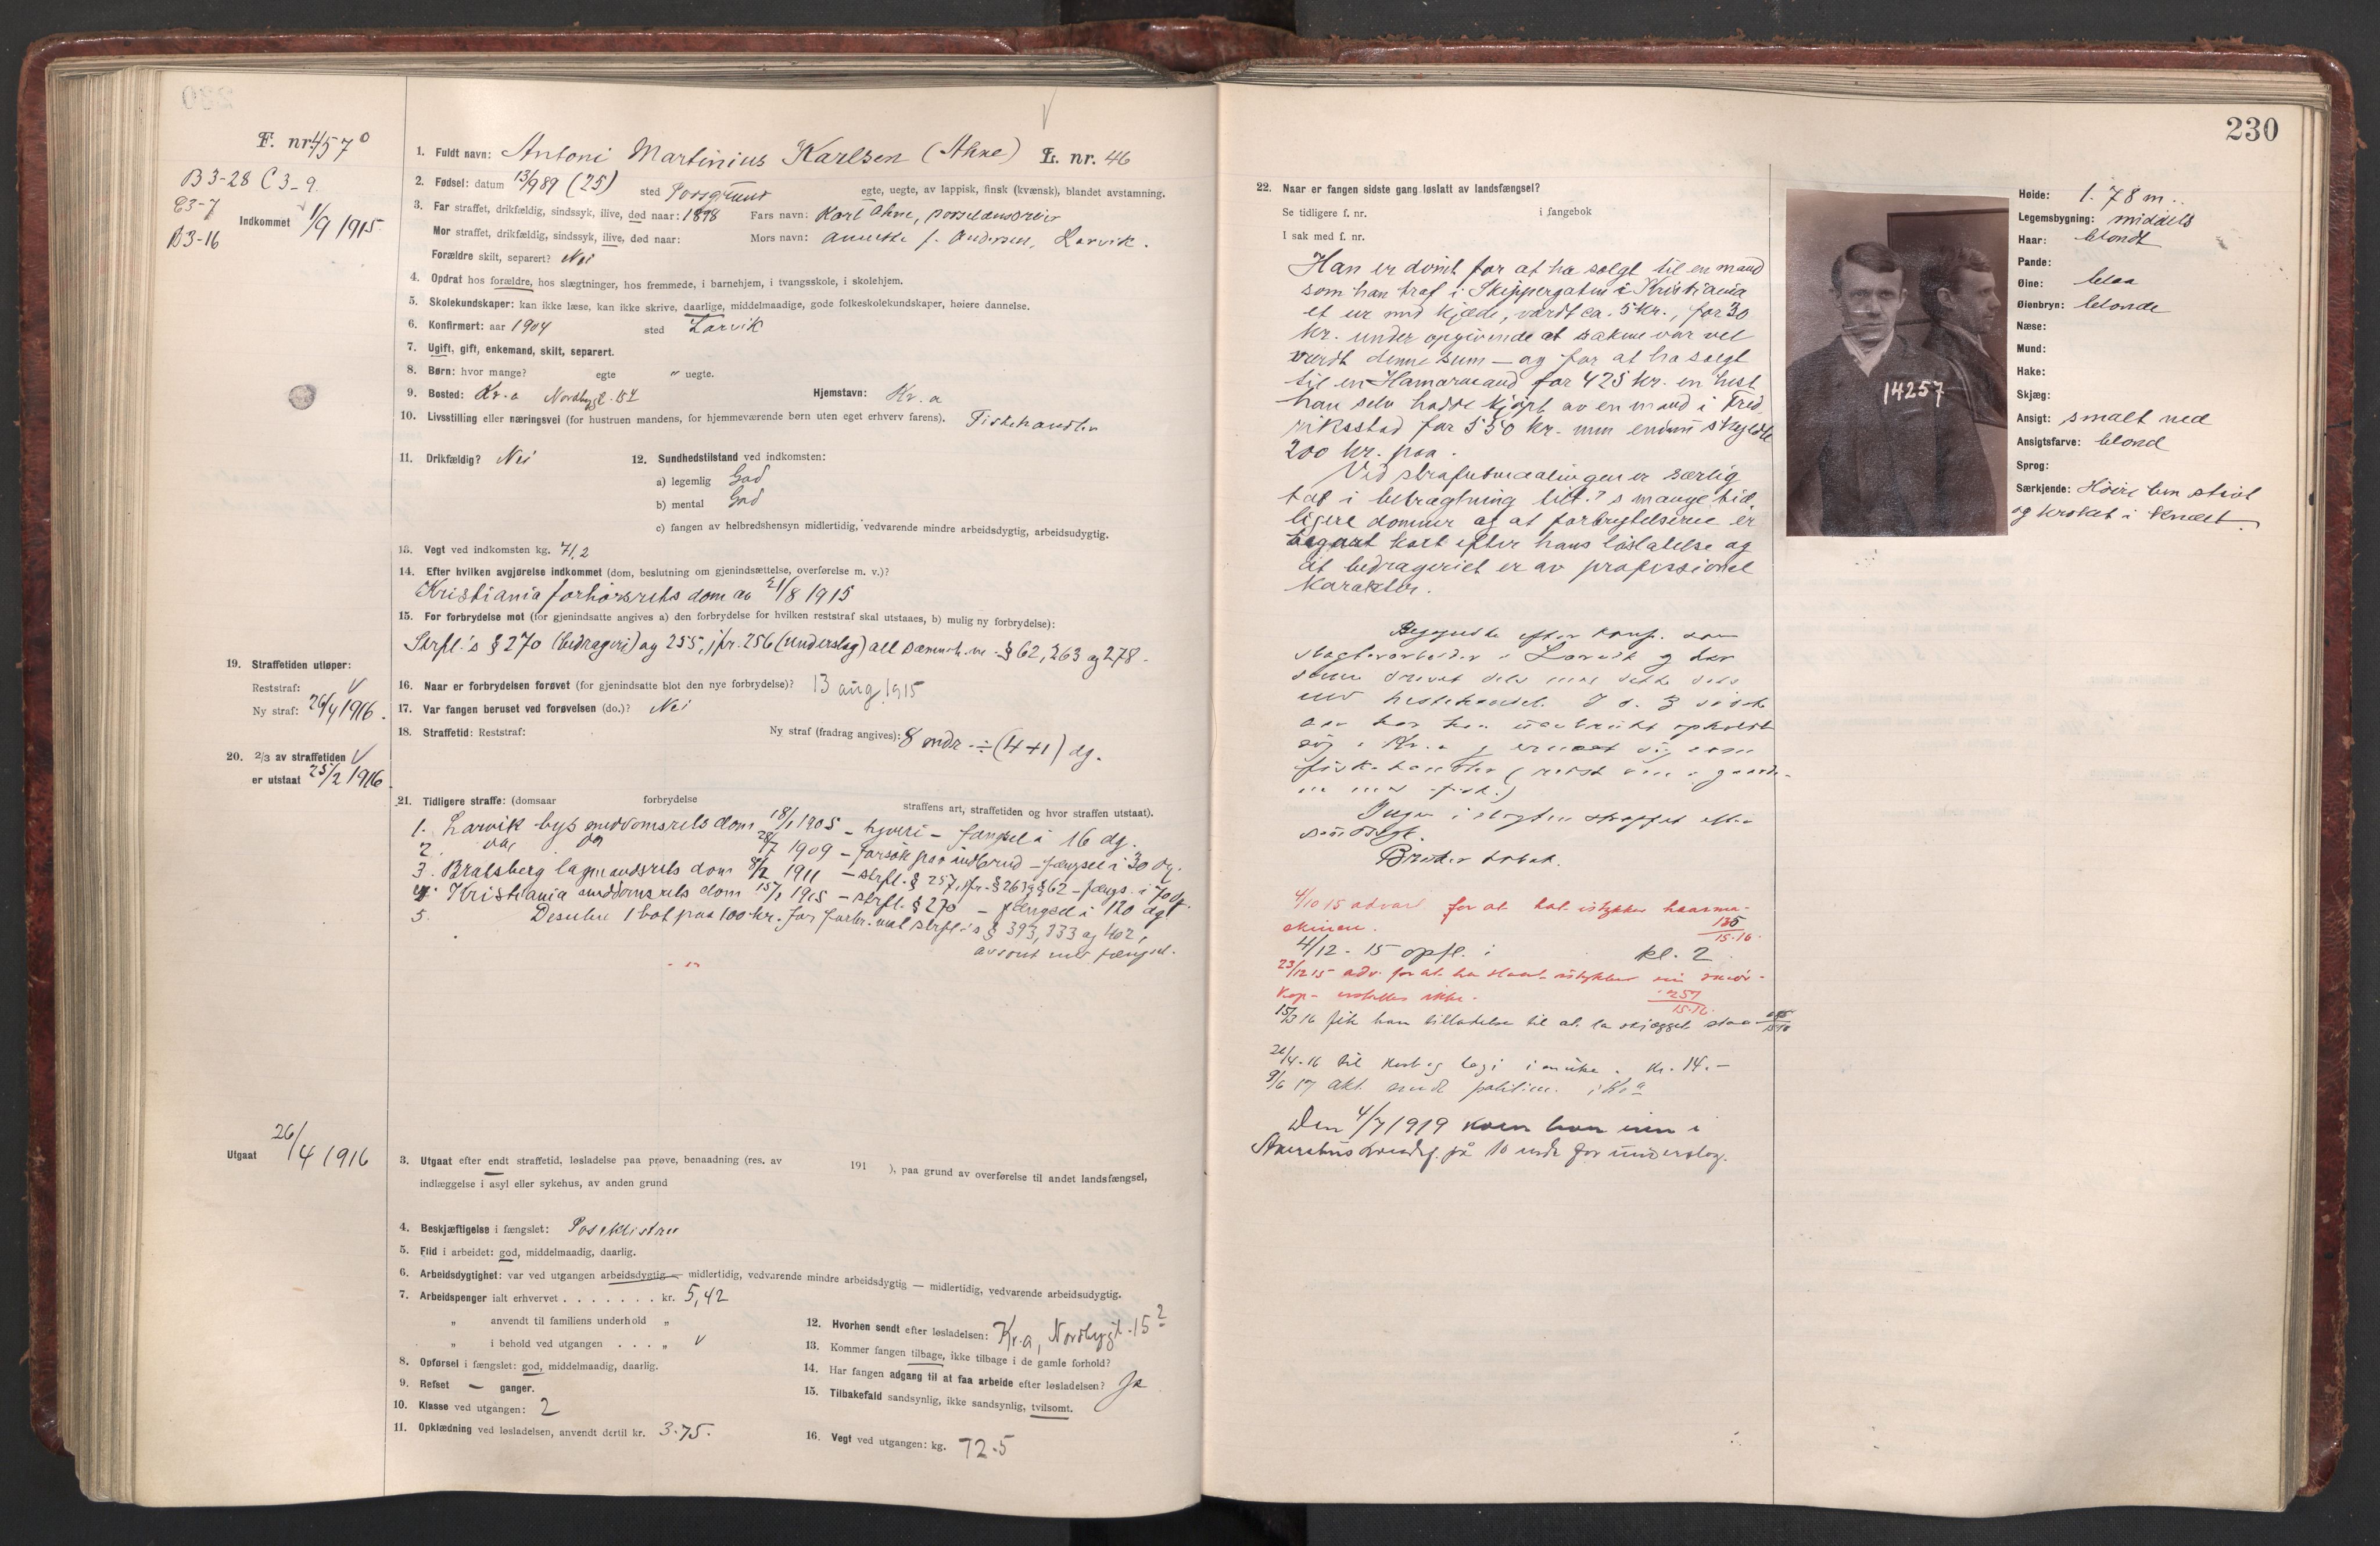 230
F. nr. 457°
B 3-28 C 3-9.
E3-7
B3-16
Indkommet 1/9 1915
1. Fuldt navn: Antoni Martinius Karlsen (Ahne) L. nr. 46
2. Fødsel: datum 13/9 89 (25) sted Porsgrund egte, uegte, av lappisk, finsk (kvænsk), blandet avstamning.
3. Far straffet, drikfældig, sindssyk, ilive, død naar: 1898 Fars navn: Karl Ahne, porselænsdreier
Mor straffet, drikfældig, sindssyk, ilive, død naar: Mors navn: Annette f. Andersen, Larvik.
Forældre skilt, separert? Nei
4. Opdrat hos forældre, hos slægtninger, hos fremmede, i barnehjem, i tvangsskole, i skolehjem.
5. Skolekundskaper: kan ikke læse, kan ikke skrive, daarlige, middelmaadige, gode folkeskolekundskaper, høiere dannelse.
6. Konfirmert: aar 1904 sted Larvik
7. Ugift, gift, enkemand, skilt, separert.
8. Børn: hvor mange? egte " uegte.
9. Bosted: Kr.a Nordbygt. 15 Hjemstavn: Kr.a
10. Livsstilling eller næringsvei (for hustruen mandens, for hjemmeværende børn uten eget erhverv farens). Fiskehandler
11. Drikfældig? Nei 12. Sundhedstilstand ved indkomsten:
a) legemlig God
b) mental God
c) fangen av helbredshensyn midlertidig, vedvarende mindre arbeidsdygtig, arbeidsudygtig.
13. Vegt ved indkomsten kg. 71,2
14. Efter hvilken avgjørelse indkommet (dom, beslutning om gjenindsættelse, overførelse m. v.)?
Kristiania forhørsrets dom av 21/8 1915
15. For forbrydelse mot (for gjenindsatte angives a) den forbrydelse for hvilken reststraf skal utstaaes, b) mulig ny forbrydelse):
Strfl.'s § 270 (bedrageri) og 255, jfr. 256 (underslag) alt sammenh. m. § 62, 263 og 278.
19. Straffetiden utløper:
Reststraf: V
Ny straf: 26/4 1916.
16. Naar er forbrydelsen forøvet (for gjenindsatte blot den nye forbrydelse)? 13 aug. 1915
17. Var fangen beruset ved forøvelsen (do.)? Nei
18. Straffetid: Reststraf: Ny straf (fradrag angives): 8 mdr ÷ (4+1) dg.
20. 2/3 av straffetiden V
er utstaat 25/2 1916.
21. Tidligere straffe: (domsaar forbrydelse straffens art, straffetiden og hvor straffen utstaat).
1. Larvik bys meddomsrets dom 18/1 1905 – tyveri – fængsel i 16 dg.
2. do. do 1909 – forsøk paa indbrud – fængsel i 30 dg.
3. Bratsberg lagmandsrets dom 8/2 1911 – strfl. § 257, jfr. § 263 og § 62 – fængs. i 70 dg.
4. Kristiania meddomsrets dom 15/1 1915 – strfl. § 270 – fængsel i 120 dg.
5. Desuten 1 bot paa 100 kr. for forbr. mot strfl.'s § 393, 333 og 402,
avsont med fængsel.
Utgaat 26/4 1916
3. Utgaat efter endt straffetid, løsladelse paa prøve, benaadning (res. av 191 ), paa grund av overførelse til andet landsfængsel,
indlæggelse i asyl eller sykehus, av anden grund
4. Beskjæftigelse i fængslet: Poseklistrer
5. Flid i arbeidet: god, middelmaadig, daarlig.
6. Arbeidsdygtighet: var ved utgangen arbeidsdygtig — midlertidig, vedvarende mindre arbeidsdygtig — midlertidig, vedvarende arbeidsudygtig.
7. Arbeidspenger ialt erhvervet . . . . . . . kr. 5,42
" anvendt til familiens underhold "
" i behold ved utgangen . . . " V
8. Opførsel i fængslet: god, middelmaadig, daarlig.
9. Refset — ganger.
10. Klasse ved utgangen: 2
11. Opklædning ved løsladelsen, anvendt dertil kr. 3.75.
12. Hvorhen sendt efter løsladelsen: Kr.a, Nordbygt. 15 2
13. Kommer fangen tilbage, ikke tilbage i de gamle forhold?
14. Har fangen adgang til at faa arbeide efter løsladelsen? Ja
15. Tilbakefald sandsynlig, ikke sandsynlig, tvilsomt.
16. Vegt ved utgangen: kg. 72.5
230
22. Naar er fangen sidste gang løslatt av landsfængsel?
Se tidligere f. nr. i fangebok
I sak med f. nr.
Han er dømt for at ha solgt til en mand
som han traf i Skippergaten i Kristiania
et ur med kjæde, værdt ca. 5 kr., for 30
kr. under opgivende at sakene var vel
værdt denne sum – og for at ha solgt
til en Hamarmand for 425 kr. en hest
han selv hadde kjøpt av en mand i Fred-
rikstad for 550 kr. men endnu skyldte
200 kr. paa.
Ved strafutmaalingen er særlig
tat i betragtning tilt.'s mange tid-
ligere dommer og at forbrytelserne er
begaat kort efter hans løslatelse og
at bedrageriet er av professionel
karakter.
Begyndte efter konf. som
slagterarbeider i Larvik og har
senere drevet dels med dette dels
med hestehandel. I d. 3 sidste
aar har han uavbrudt opholdt
sig i Kr.a og ernæret sig som
fiskehandler
Ingen i slegten straffet eller
sindssyk.
Bruker tobak.
4/10 15 advart for at hat istykker haarma-
skinen. 135/15-16.
4/12-15 opfl. i kl. 2
23/12 15 adv. for at ha slaat istykker en smør-
kop – erstattes ikke. 257/15-16.
15/3 16 fik han tilladelse til at la skjægget staa
26/4-16 til kost og logi i en uke. Kr. 14.–
9/6 17 akt. sendt politiet i Kr.a
Den 4/7 1919 kom han inn i
Akershus landsf. på 10 mdr for underslag.
14257
Høide: 1.78 m..
Legemsbygning: middels
Haar: blondt
Pande:
Øine: blaa
Øienbryn: blonde
Næse:
Mund:
Hake:
Skjæg:
Ansigt: smalt ned
Ansigtsfarve: blond
Sprog:
Særkjende: Høire ben stivt
og kroket i knæet.